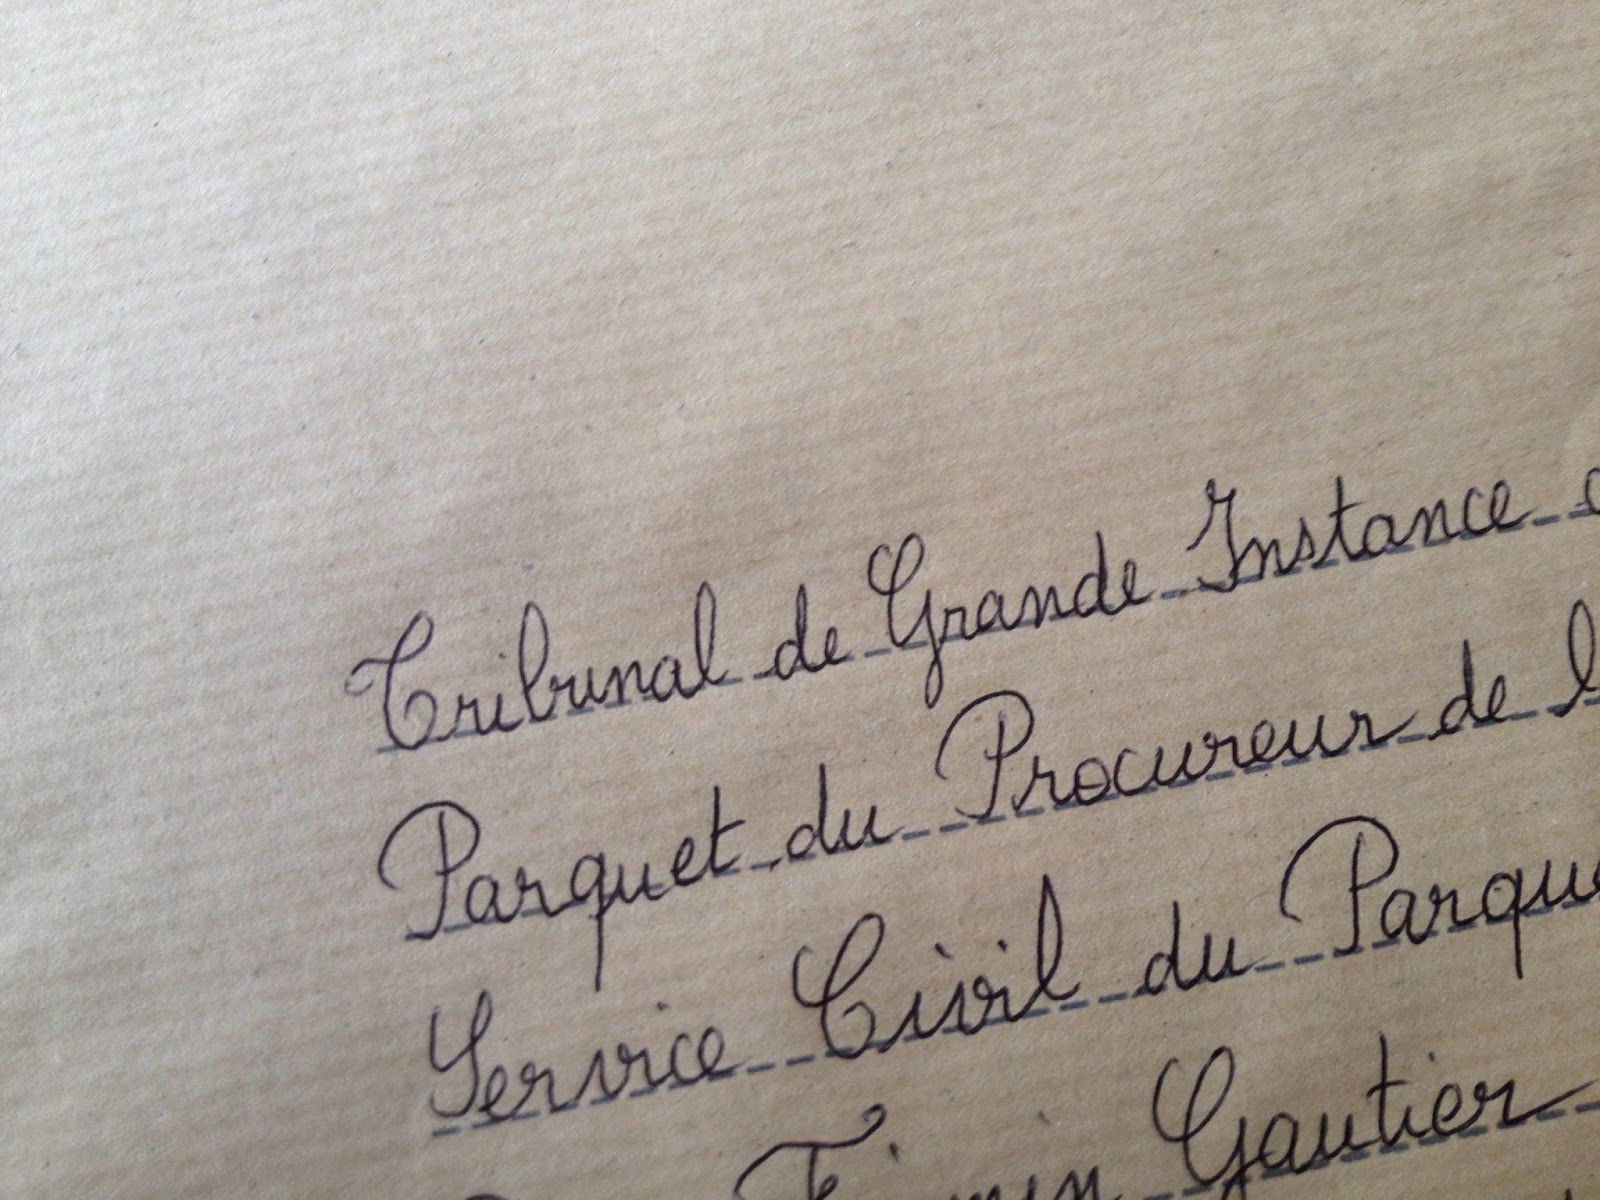 Tribunal de Grande Instance
Parquet du Procureur de l
Service Civil du Parque
Firmin Gautier